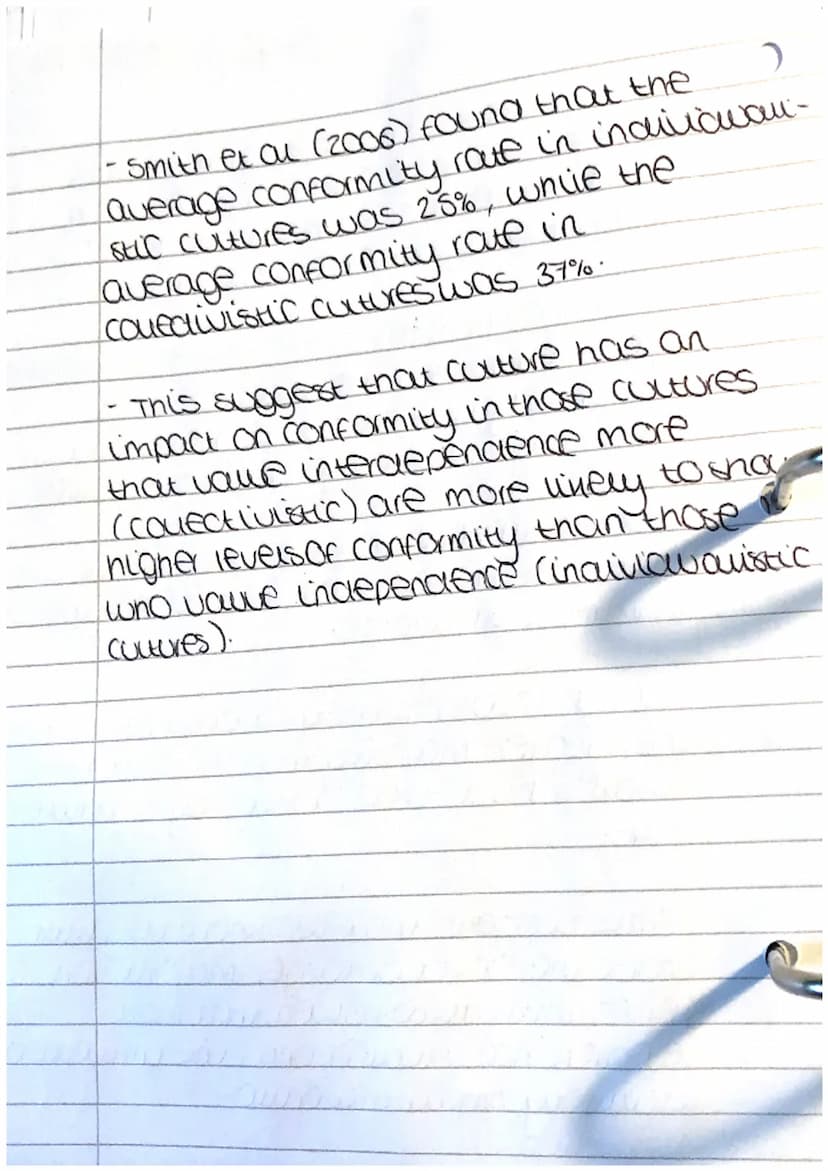 - Smith et al (2006) found that the
average conformity rate in individuali-
stic cultures was 25%, while the
average conformity rate in
collectivistic cultures was 37%.
- This suggest that culture has an
impact on conformity in those cultures
that value interdependence more
(collectivistic) are more likely to
higher levels of conformity than those
who value independence (individualistic
cultures).